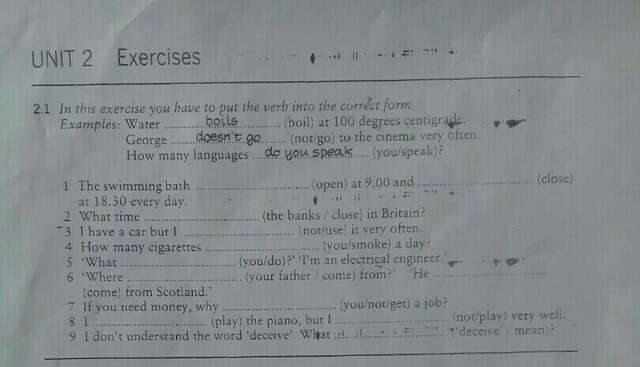 UNIT 2 Exercises
2.1 In this exercise you have to put the verb into the correct form.
Examples: Water ........boils........ (boil) at 100 degrees centigrade.
George ......doesn't go...... (not/go) to the cinema very often.
How many languages ...do you speak... (you/speak)?
1 The swimming bath .............................. (open) at 9.00 and .............................. (close)
at 18.30 every day.
2 What time .............................. (the banks / close) in Britain?
3 I have a car but I .............................. (not/use) it very often.
4 How many cigarettes .............................. (you/smoke) a day?
5 ‘What .............................. (you/do)?’ ‘I'm an electrical engineer.’
6 ‘Where .............................. (your father / come) from?’ ‘He ..............................
(come) from Scotland.’
7 If you need money, why .............................. (you/not/get) a job?
8 I .............................. (play) the piano, but I .............................. (not/play) very well.
9 I don't understand the word ‘deceive’. What .............................. (‘deceive’ / mean)?